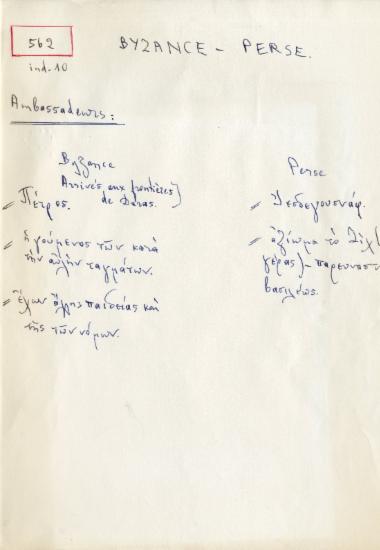 562
ind. 10
BYZANCE - PERSE.
Ambassadeurs :
Byzance
Arrivés aux frontières
de Daras.
Πέτρος.
ἡγούμενος τῶν κατὰ
τὴν αὐλὴν ταγμάτων.
ἕλων ἄλλης παιδείας καὶ
τῆς τῶν νόμων.
Perse
Ἰεσδεγουσνάφ.
ἀξίωμα τὸ Ζὶχ (
γέρας) - παρευναστ
βασιλέως.